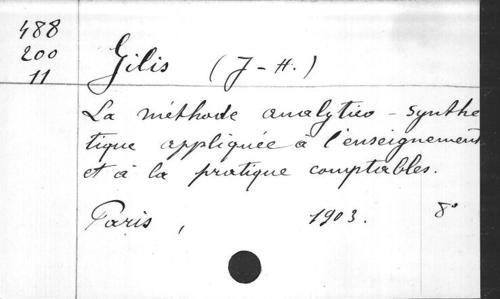 488
200
11
Gilis (J-H.)
La méthode analytico-synthé
tique appliquée à l'enseignement
et à la pratique comptables.
Paris, 1903. 8°